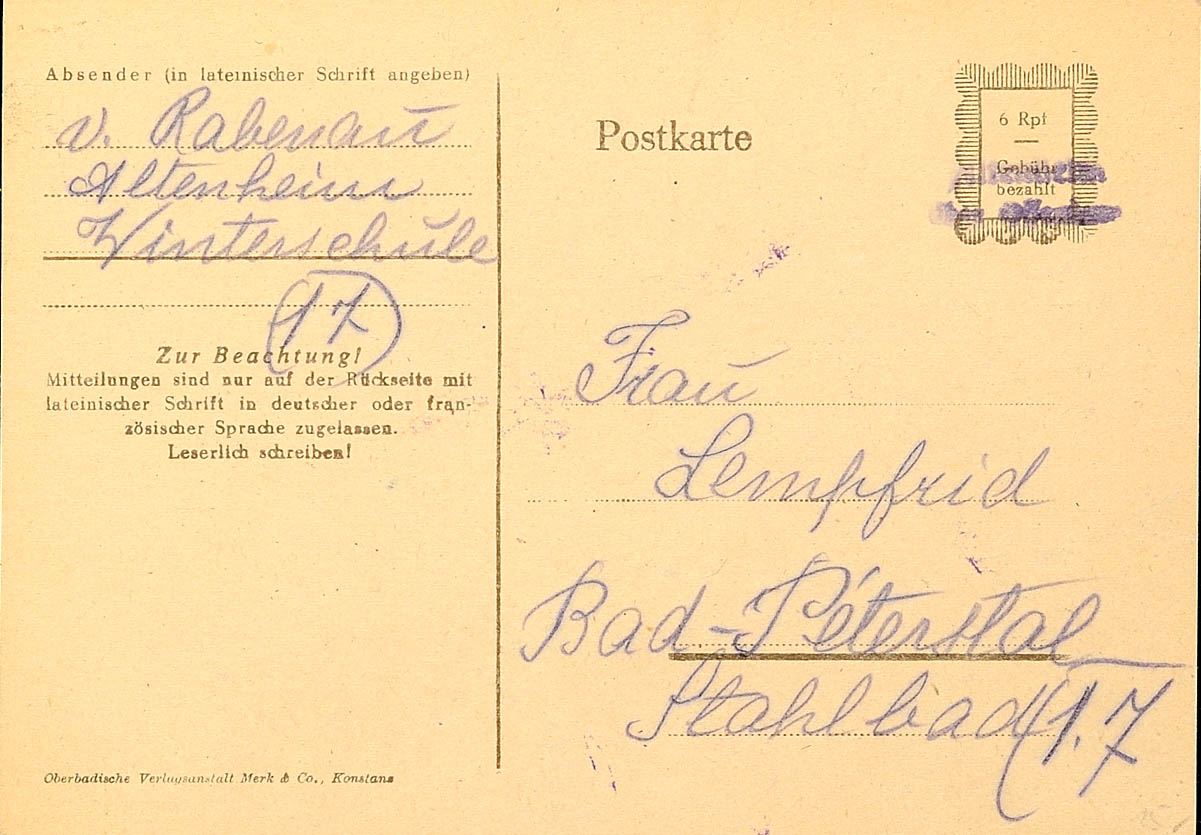 Absender (in lateinischer Schrift angeben)
v. Rabenau
Altenheim
Winterschule
(17)
Zur Beachtung!
Mitteilungen sind nur auf der Rückseite mit
lateinischer Schrift in deutscher oder fran-
zösischer Sprache zugelassen.
Leserlich schreiben!
Oberbadische Verlagsanstalt Merk & Co., Konstanz
Postkarte
6 Rpf
Gebühr
bezahlt
Frau
Lempfrid
Bad-Péterstal
Stahlbad (1.7